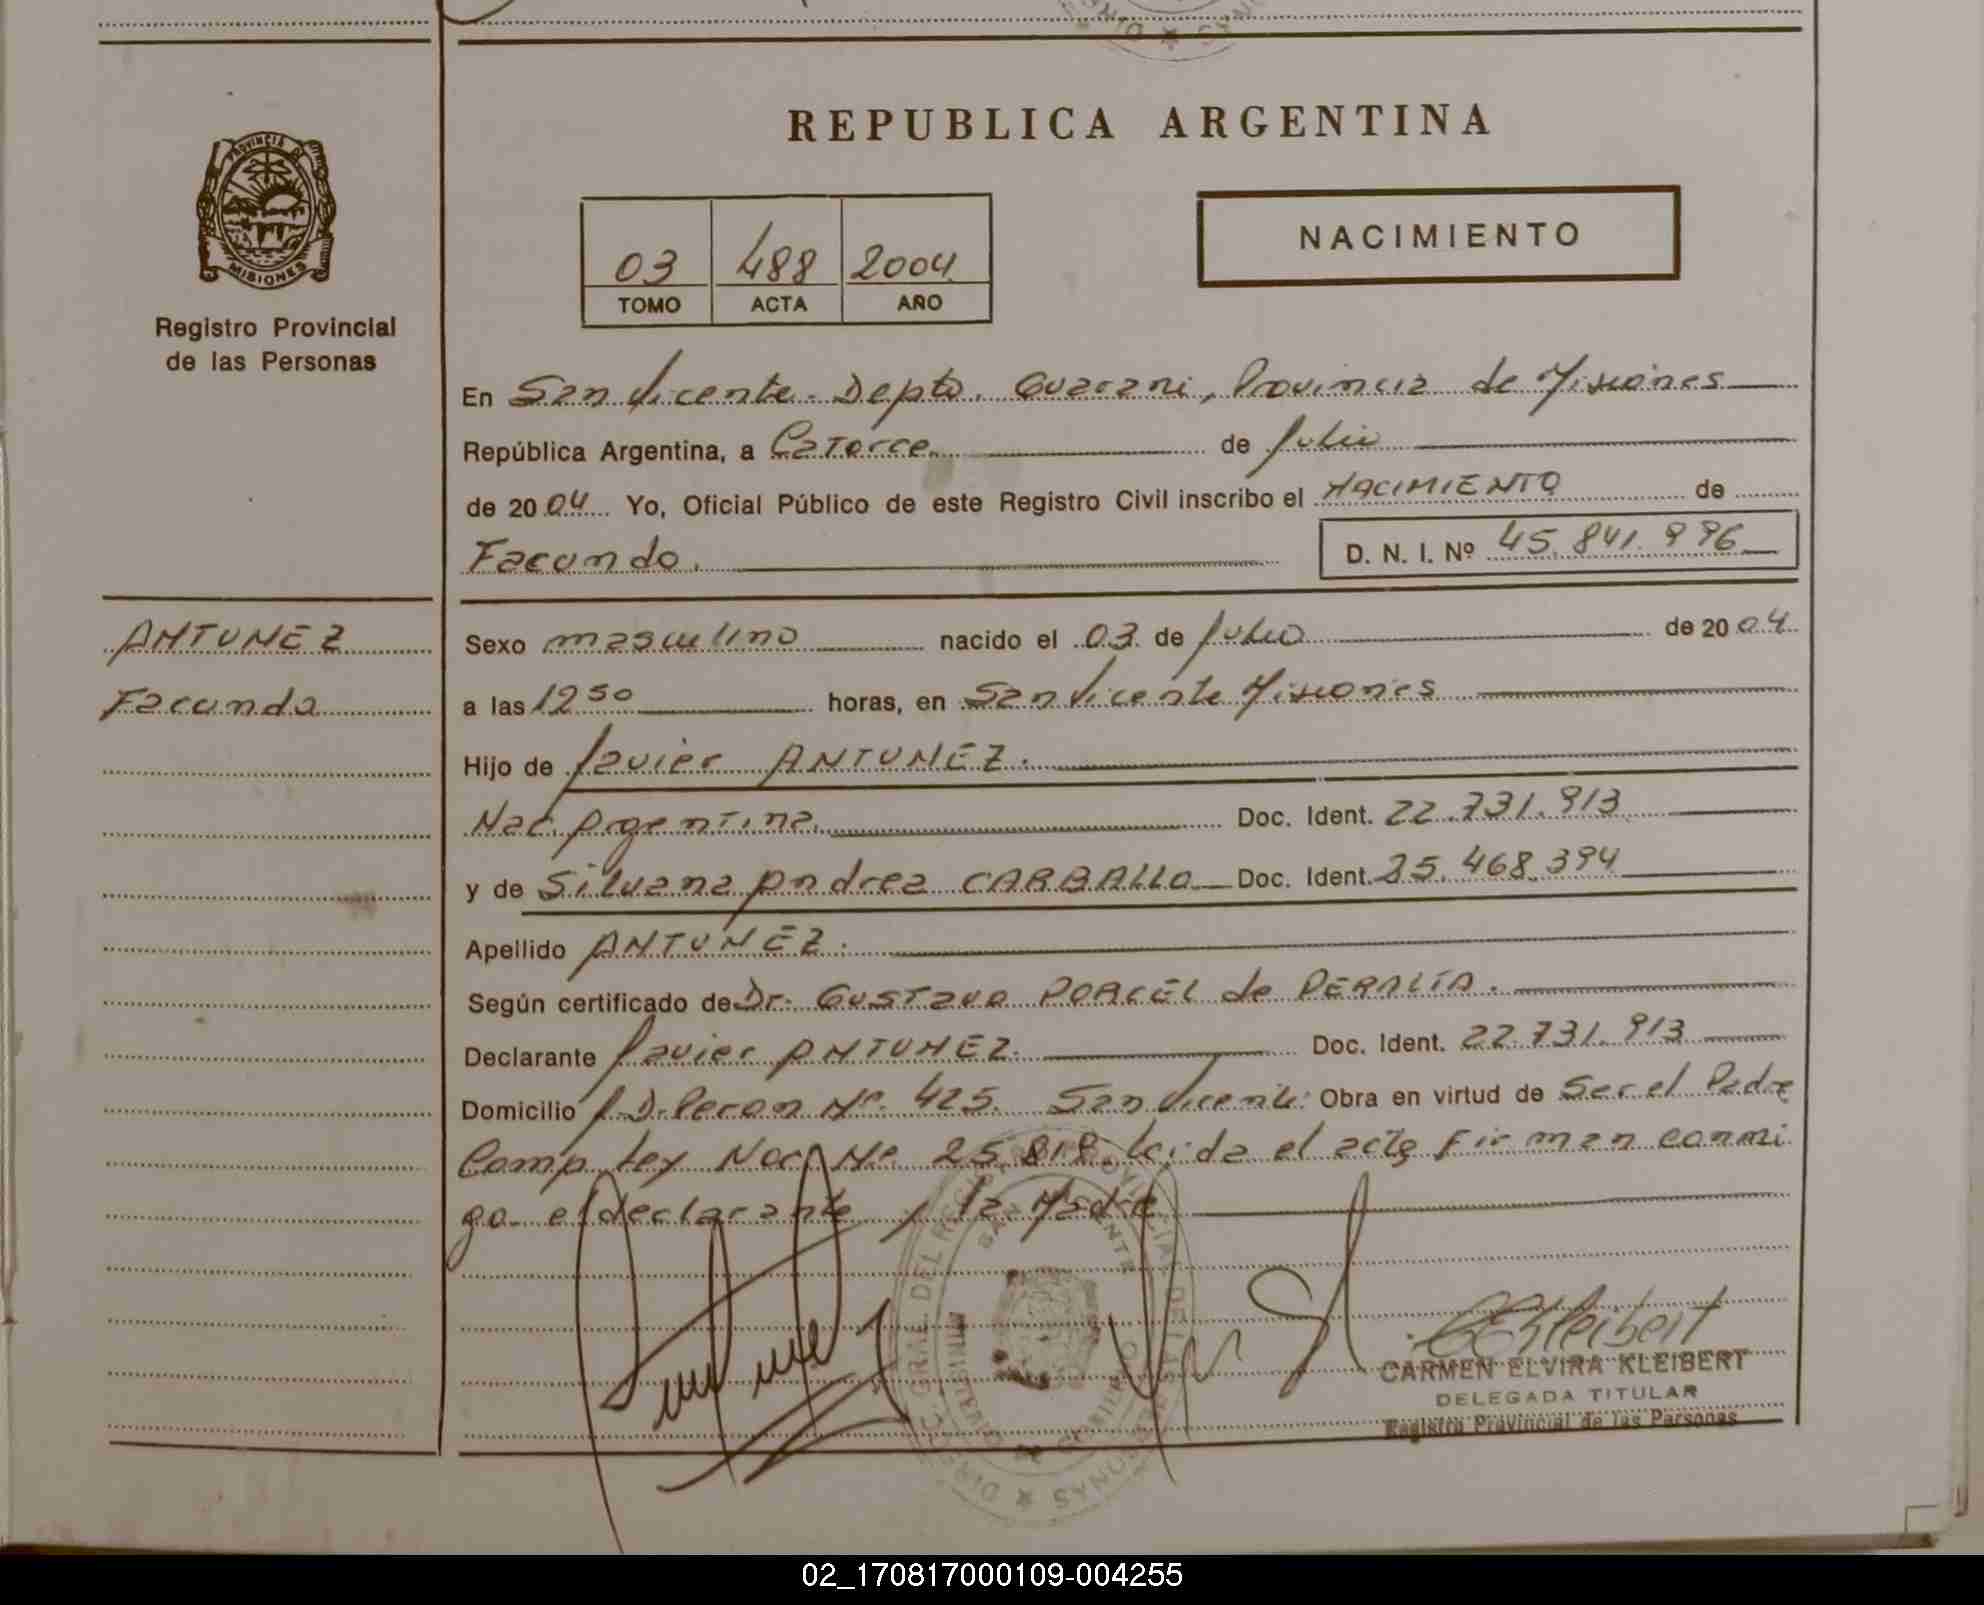 REPUBLICA ARGENTINA
PROVINCIA DE
MISIONES
Registro Provincial
de las Personas
03 488 2004
TOMO ACTA AÑO
NACIMIENTO
En San Vicente. Depto. Guarani, Provincia de Misiones
República Argentina, a Catorce de Julio
de 2004 Yo, Oficial Público de este Registro Civil inscribo el NACIMIENTO de
Facundo. D. N. I. Nº 45.841.996
ANTUNEZ
Facundo
Sexo masculino nacido el 03 de Julio de 2004
a las 12 50 horas, en San Vicente Misiones
Hijo de Javier ANTUNEZ.
Nac. Argentina Doc. Ident. 22.731.913
y de Silvana Andrea CARBALLO Doc. Ident. 25.468.394
Apellido ANTUNEZ.
Según certificado de Dr. Gustavo PORCEL de PERALTA.
Declarante Javier ANTUNEZ. Doc. Ident. 22.731.913
Domicilio J.D. Peron Nº. 425. San Vicente. Obra en virtud de Ser el Padre
Comp. Ley Nac. Nº 25.819. Leida el acta Firman conmi
go el declarante y la Madre
CARMEN ELVIRA KLEIBERT
DELEGADA TITULAR
Registro Provincial de las Personas
02_170817000109-004255